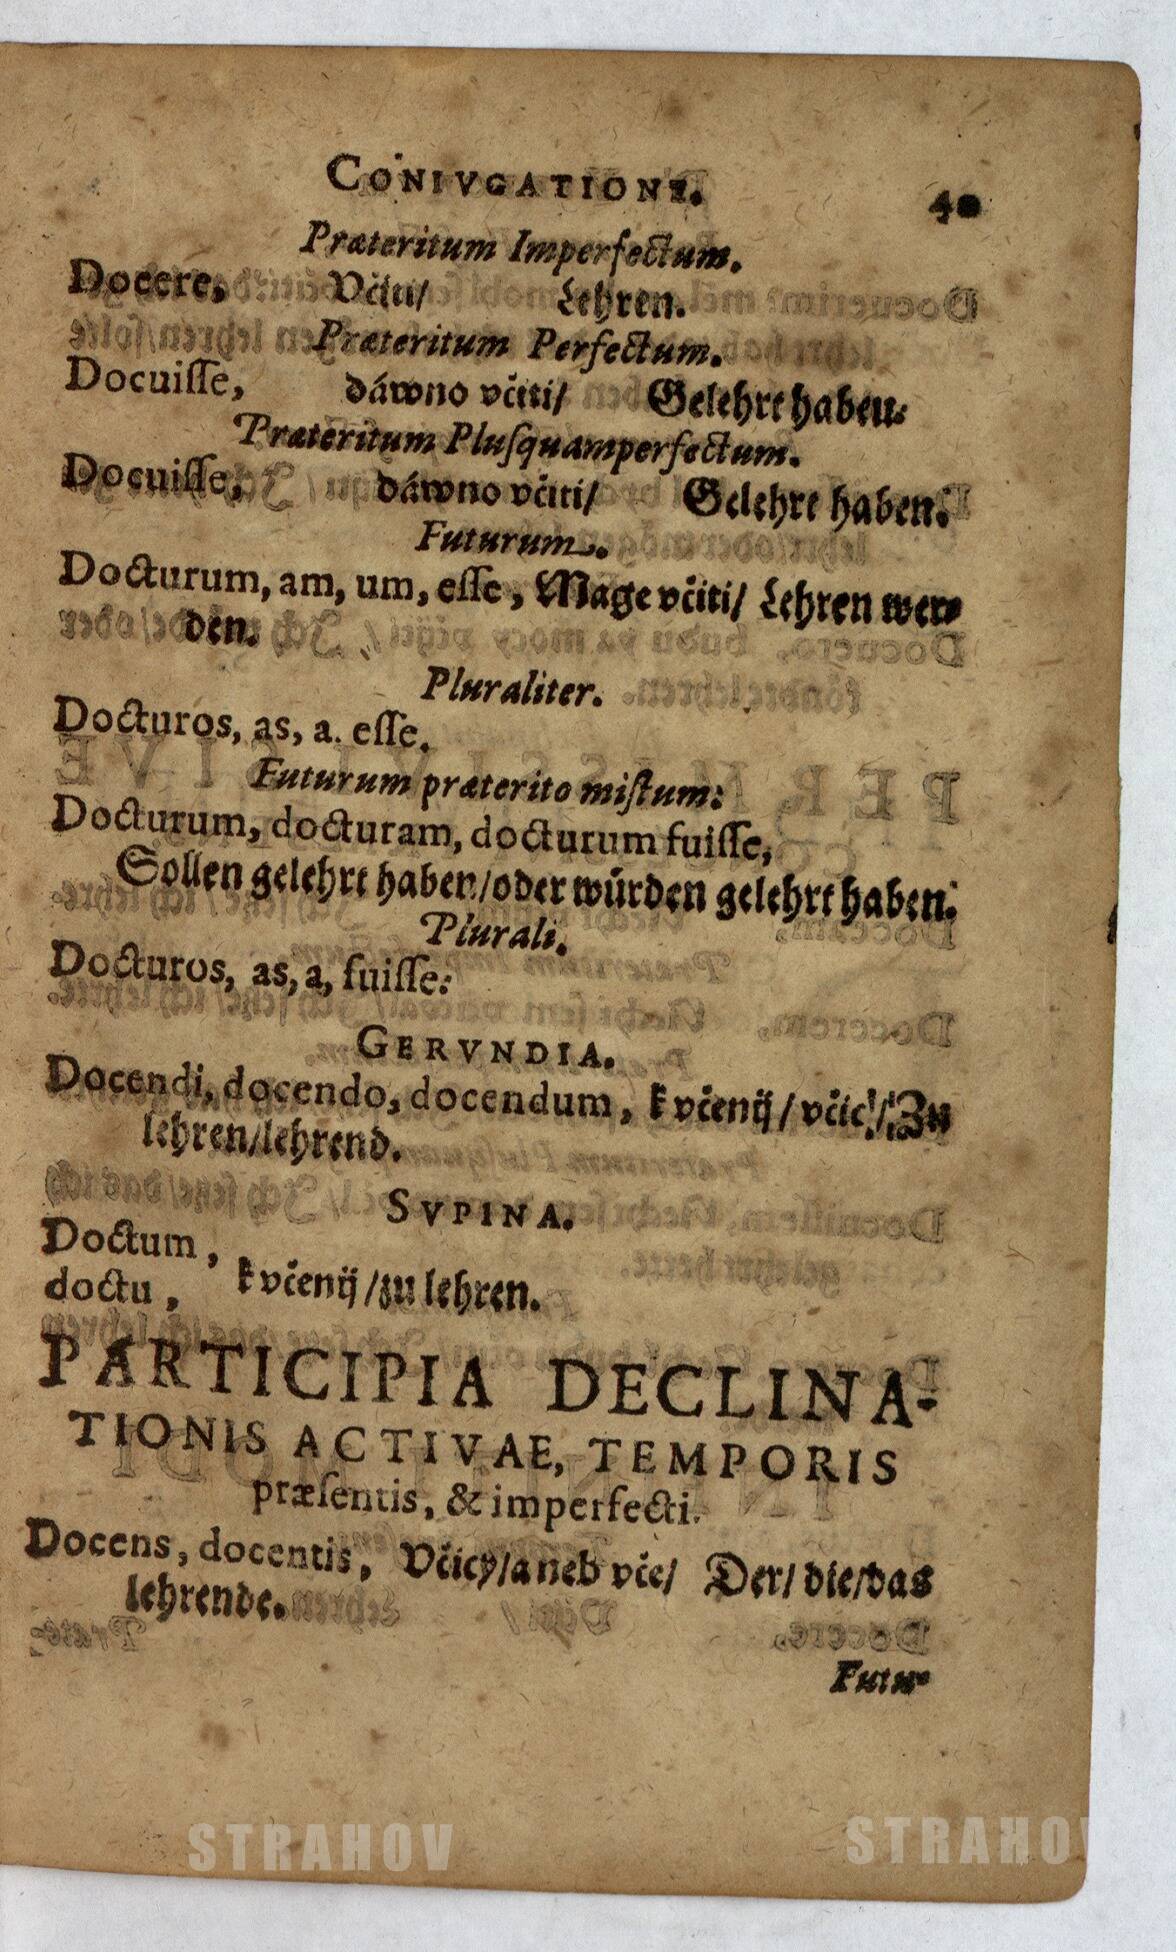 CONIVGATIONE. 40
Præteritum Imperfectum.
Docere, Včiti/ Lehren.
Præteritum Perfectum.
Docuiſſe, dáwno včiti/ Gelehrt haben.
Præteritum Pluſquamperfectum.
Docuiſſe, dáwno včiti/ Gelehrt haben.
Futurum.
Docturum, am, um, eſſe, Mage včiti/ Lehren wer-
den.
Pluraliter.
Docturos, as, a. eſſe.
Futurum præterito miſtum:
Docturum, docturam, docturum fuiſſe,
Sollen gelehrt haben/oder würden gelehrt haben.
Plurali.
Docturos, as, a, fuiſſe.
GERVNDIA.
Docendi, docendo, docendum, k včenij / včic/ Zu
lehren/lehrend.
SVPINA.
Doctum,
doctu, k včenij /zu lehren.
PARTICIPIA DECLINA-
TIONIS ACTIVAE, TEMPORIS
præſentis, & imperfecti.
Docens, docentis, Včicý/aneb vče/ Der/ die/das
lehrende.
Futu-
STRAHOV STRAHOV